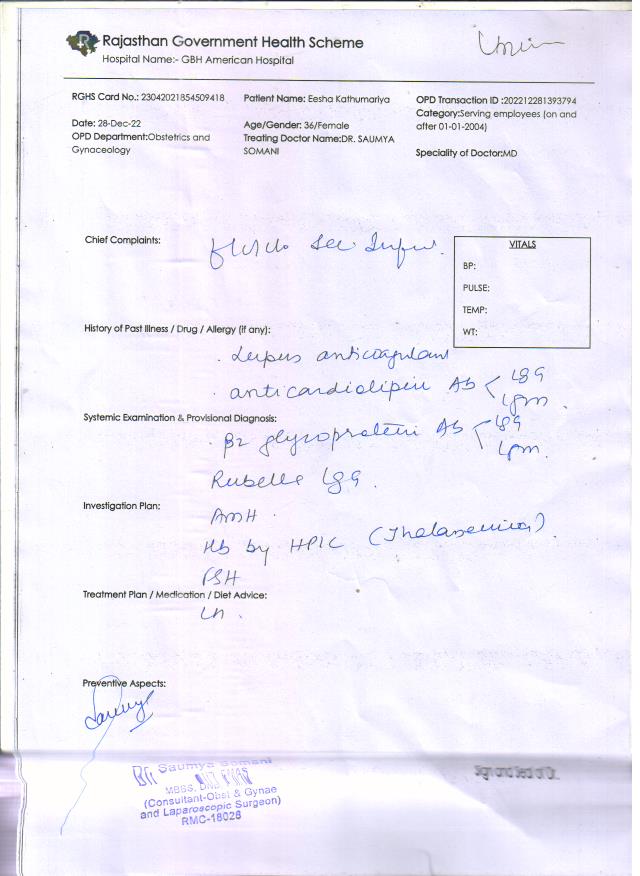 Rajasthan Government Health Scheme
Hospital Name:- GBH American Hospital
RGHS Card No.: 23042021854509418
Patient Name: Eesha Kathumariya
OPD Transaction ID :202212281393794
Category:Serving employees (on and after 01-01-2004)
Date: 28-Dec-22
Age/Gender: 36/Female
OPD Department:Obstetrics and Gynaceology
Treating Doctor Name:DR. SAUMYA SOMANI
Speciality of Doctor:MD
Chief Complaints:
VITALS
BP:
PULSE:
TEMP:
WT:
History of Past Illness / Drug / Allergy (if any):
. Lupus anticoagulant
. anticardiolipin Ab < IgG
IgM .
Systemic Examination & Provisional Diagnosis:
. β2 glycoprotein Ab < IgG
IgM .
Rubella IgG .
Investigation Plan:
AMH .
Hb by HPLC (Thalassemia)
FSH
Treatment Plan / Medication / Diet Advice:
LH .
Preventive Aspects:
Saumya Somani
MBBS, DNB
(Consultant-Obst & Gynae
and Laparoscopic Surgeon)
RMC-18026
Sign and Seal of Dr.